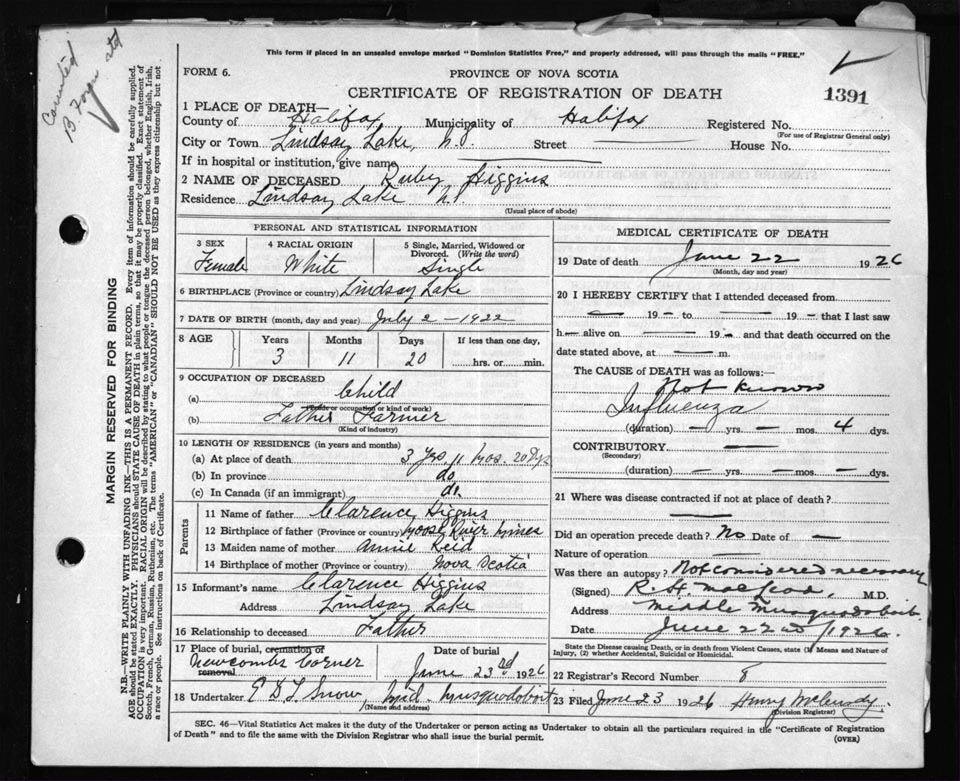 This form if placed in an unsealed envelope marked "Dominion Statistics Free," and properly addressed, will pass through the mails "FREE."
FORM 6.
PROVINCE OF NOVA SCOTIA
CERTIFICATE OF REGISTRATION OF DEATH
1391
1 PLACE OF DEATH—
County of Halifax Municipality of Halifax Registered No.
(For use of Registrar General only)
City or Town Lindsay Lake, N.S. Street — House No.
If in hospital or institution, give name —
2 NAME OF DECEASED Ruby Higgins
Residence Lindsay Lake
(Usual place of abode)
PERSONAL AND STATISTICAL INFORMATION
3 SEX Female
4 RACIAL ORIGIN White
5 Single, Married, Widowed or Divorced. (Write the word) Single
6 BIRTHPLACE (Province or country) Lindsay Lake
7 DATE OF BIRTH (month, day and year) July 2 - 1922
8 AGE Years 3 Months 11 Days 20 If less than one day, hrs. or min.
9 OCCUPATION OF DECEASED
(a) Child
(Trade or occupation or kind of work)
(b) Father Farmer
(Kind of industry)
10 LENGTH OF RESIDENCE (in years and months)
(a) At place of death 3 yrs 11 mos. 20 Dys
(b) In province do
(c) In Canada (if an immigrant) do.
Parents
11 Name of father Clarence Higgins
12 Birthplace of father (Province or country) Moose River Mines
13 Maiden name of mother Annie Reid
14 Birthplace of mother (Province or country) Nova Scotia
15 Informant's name Clarence Higgins
Address Lindsay Lake
16 Relationship to deceased Father
17 Place of burial, cremation or removal Newcombs Corner
Date of burial June 23rd 1926
18 Undertaker E D L Snow, Mid. Musquodoboit
(Name and address)
MEDICAL CERTIFICATE OF DEATH
19 Date of death June 22 1926
(Month, day and year)
20 I HEREBY CERTIFY that I attended deceased from
— 19 — to — 19 — that I last saw
h— alive on — 19 — and that death occurred on
date stated above, at — m.
The CAUSE of DEATH was as follows:—
Not known
Influenza
(duration) — yrs. — mos. 4 dys.
CONTRIBUTORY —
(Secondary)
(duration) — yrs. — mos. — dys.
21 Where was disease contracted if not at place of death?
—
Did an operation precede death? No Date of —
Nature of operation —
Was there an autopsy? Not considered necessary
(Signed) R.H. MacLeod, M.D.
Address Middle Musquodoboit
Date June 22nd/1926.
State the Disease causing Death, or in death from Violent Causes, state (1) Means and Nature of Injury, (2) whether Accidental, Suicidal or Homicidal.
22 Registrar's Record Number 8
23 Filed June 23 1926 Henry McCurdy
(Division Registrar)
SEC. 46—Vital Statistics Act makes it the duty of the Undertaker or person acting as Undertaker to obtain all the particulars required in the "Certificate of Registration
of Death" and to file the same with the Division Registrar who shall issue the burial permit.
(OVER)
MARGIN RESERVED FOR BINDING
N.B.—WRITE PLAINLY WITH UNFADING INK—THIS IS A PERMANENT RECORD. Every item of information should be carefully supplied.
AGE should be stated EXACTLY. PHYSICIANS should STATE CAUSE OF DEATH in plain terms, so that it may be properly classified. Exact statement of
OCCUPATION is very important. RACIAL ORIGIN will be described by stating to what people or tongue the deceased person belonged, whether English, Irish,
Scotch, French, German, Russian, Ruthenian, etc. The terms "AMERICAN" or "CANADIAN" SHOULD NOT BE USED as they express citizenship but not
a race or people. See instructions on back of Certificate.